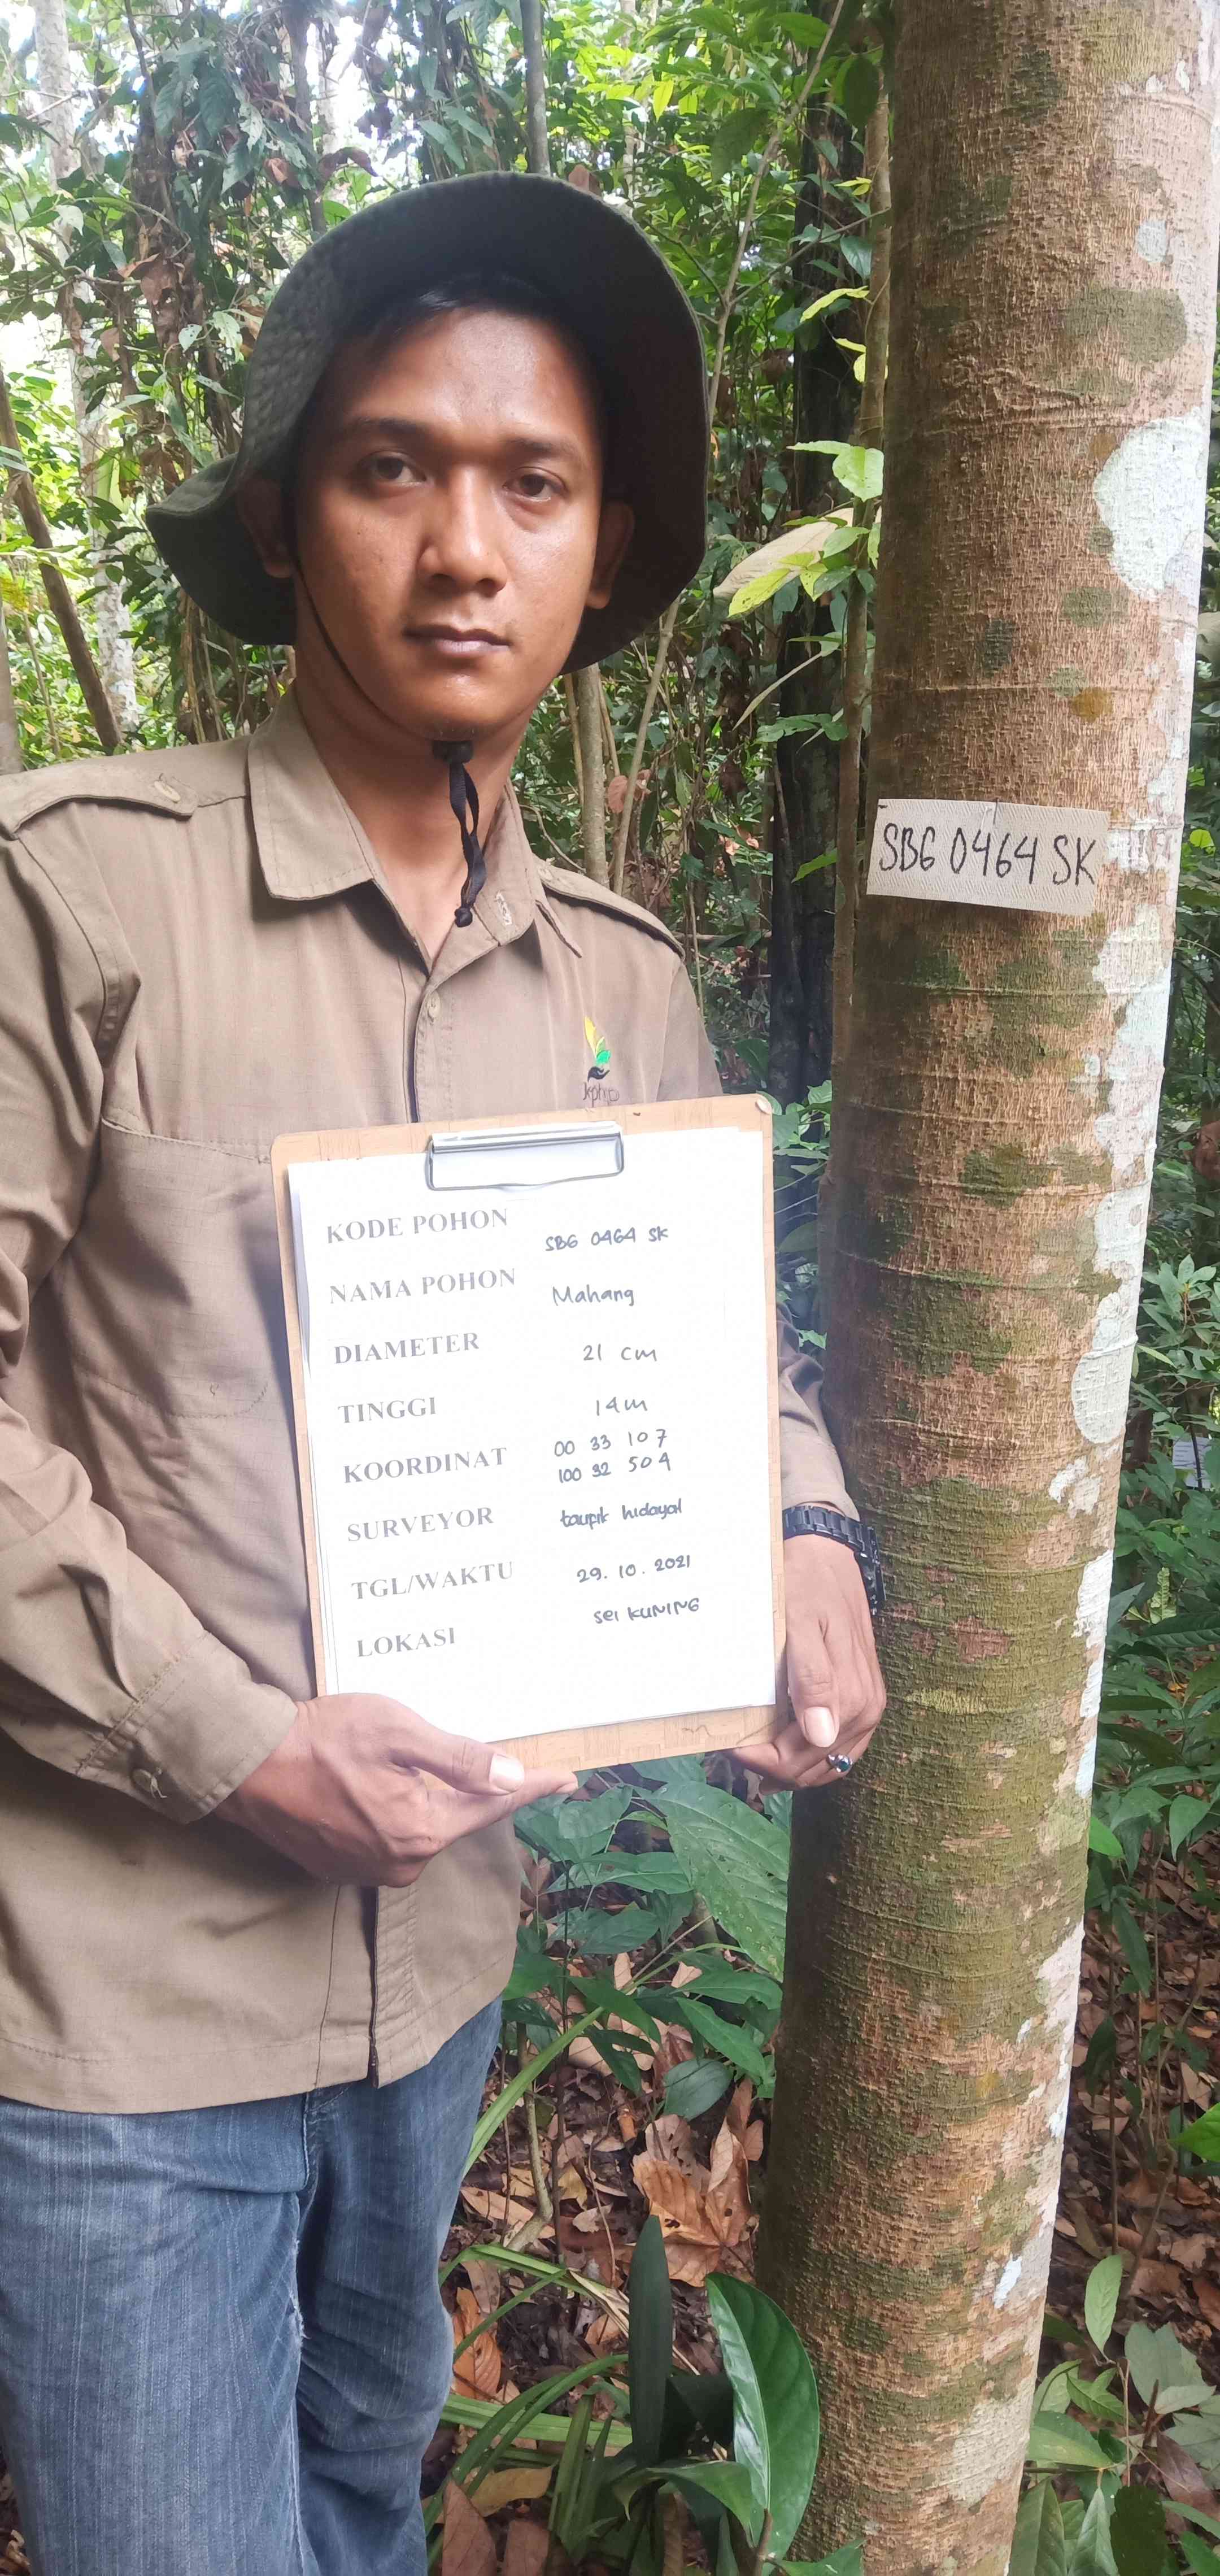 SBG 0464 SK
kphp
KODE POHON SBG 0464 SK
NAMA POHON Mahang
DIAMETER 21 cm
TINGGI 14m
KOORDINAT 00 33 107
100 32 504
SURVEYOR taupik hidayat
TGL/WAKTU 29.10.2021
LOKASI sei KUNING